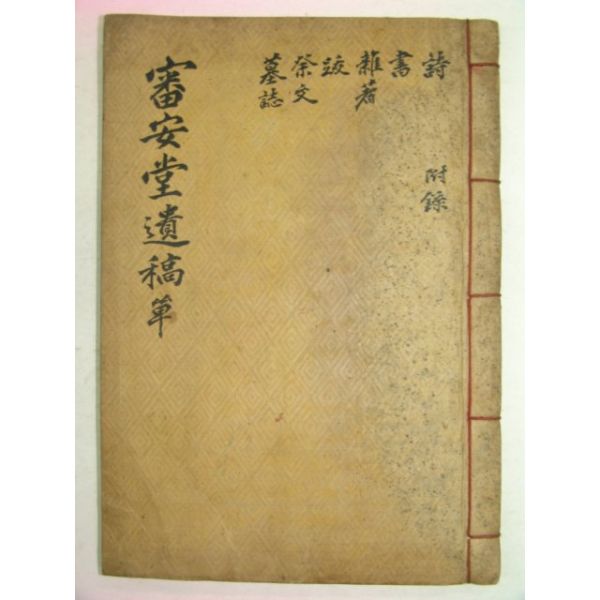 詩
附錄
書
雜著
跋
祭文
墓誌
審安堂遺稿單